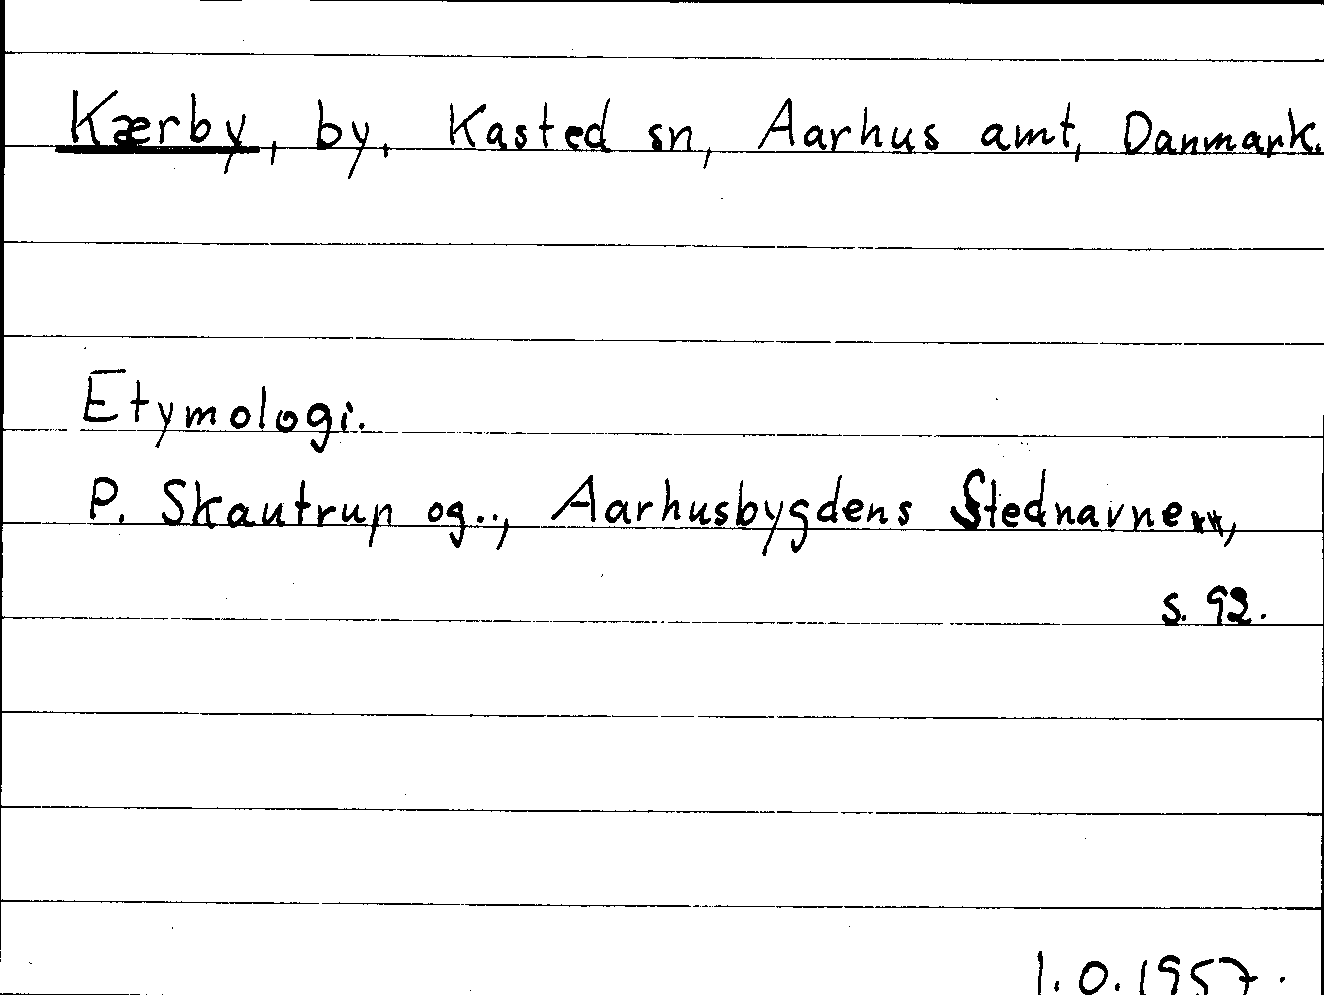 Kærby, by, Kasted sn, Aarhus amt, Danmark.
Etymologi.
P. Skautrup og.., Aarhusbygdens Stednavne,
s. 92.
I.O.1957.